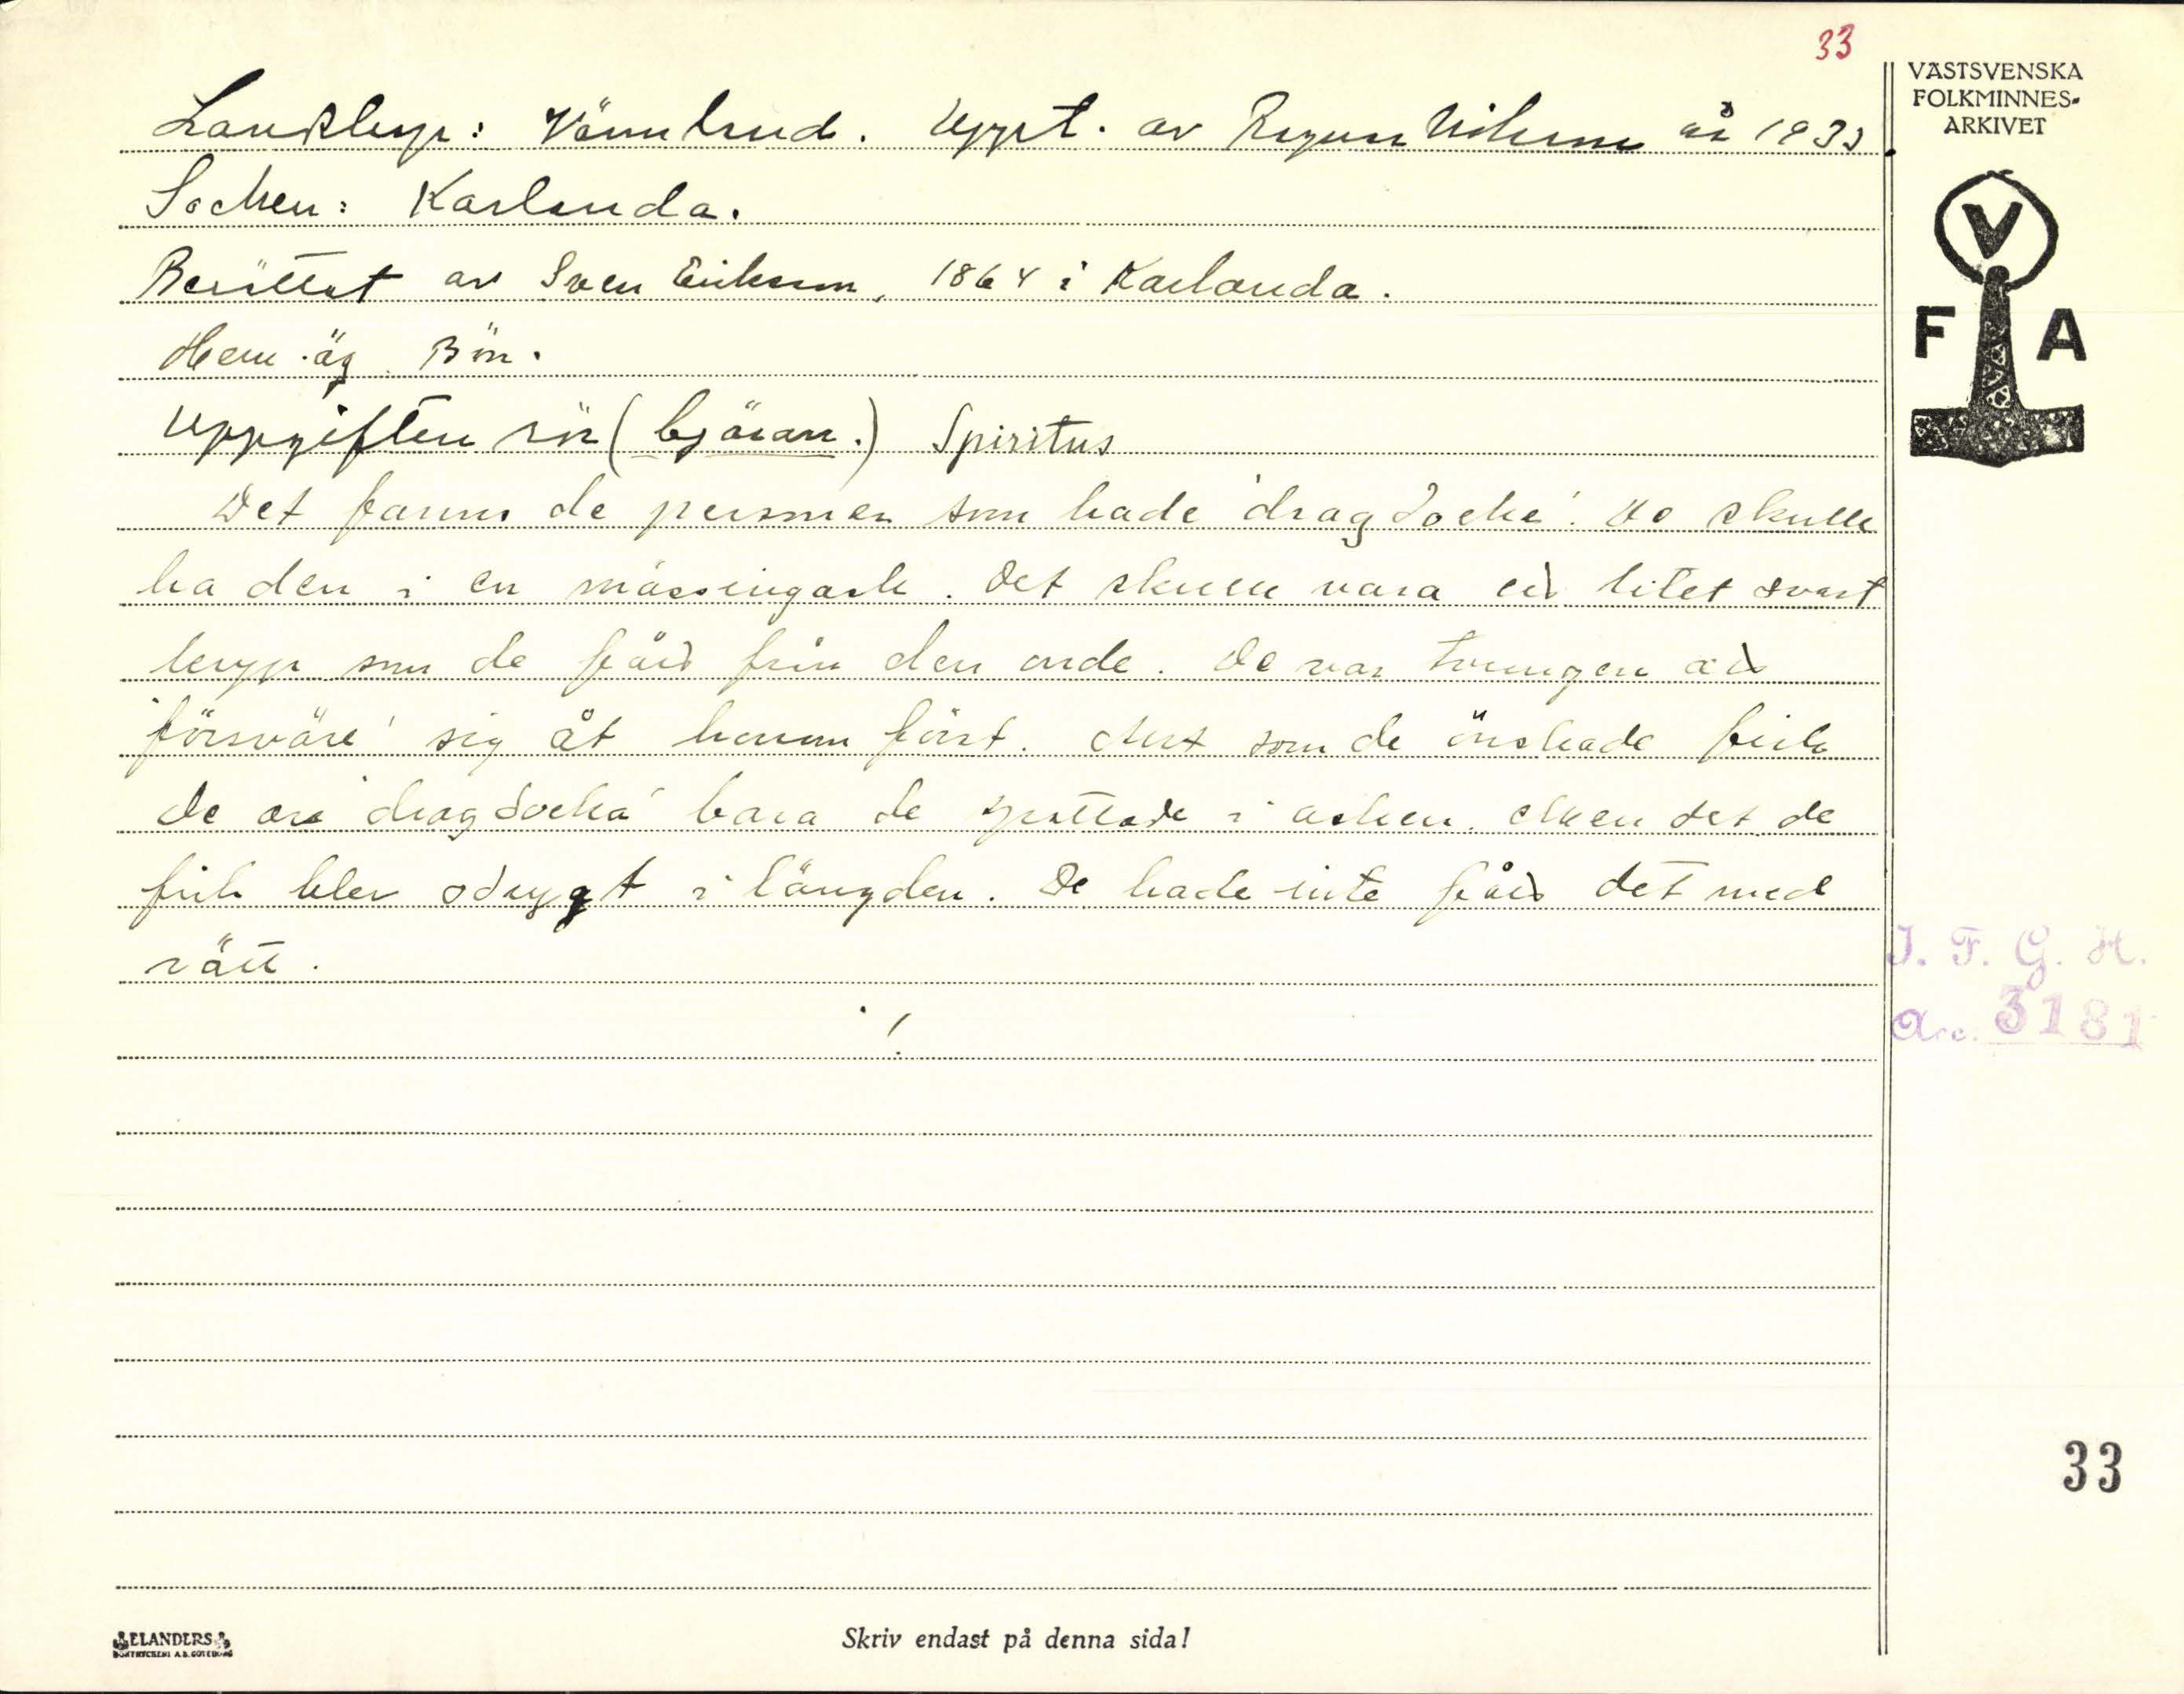 33
VÄSTSVENSKA
FOLKMINNES-
ARKIVET
Landskap: Värmland. Uppt. av Ragnar Nilsson år 1933
Socken: Karlanda.
Berättat av Sven Eriksson, 1864 i Karlanda.
Hem.äg. Bön.
Uppgiften rör (bjäran.) Spiritus
V
F A
Det fanns de personer som hade 'dragdocke'. De skulle
ha den i en mässingask. Det skulle vara ett litet svart
kryp som de fått från den onde. De var tvungen att
'försväre' sig åt honom först. Allt som de önskade fick
de av 'dragdocka' bara de spottade i asken. Men det de
fick blev odrygt i längden. De hade inte fått det med
rätt.
I. F. G. H.
Acc. 3181
33
ELANDERS
BOKTRYCKERI A.B. GÖTEBORG
Skriv endast på denna sida!